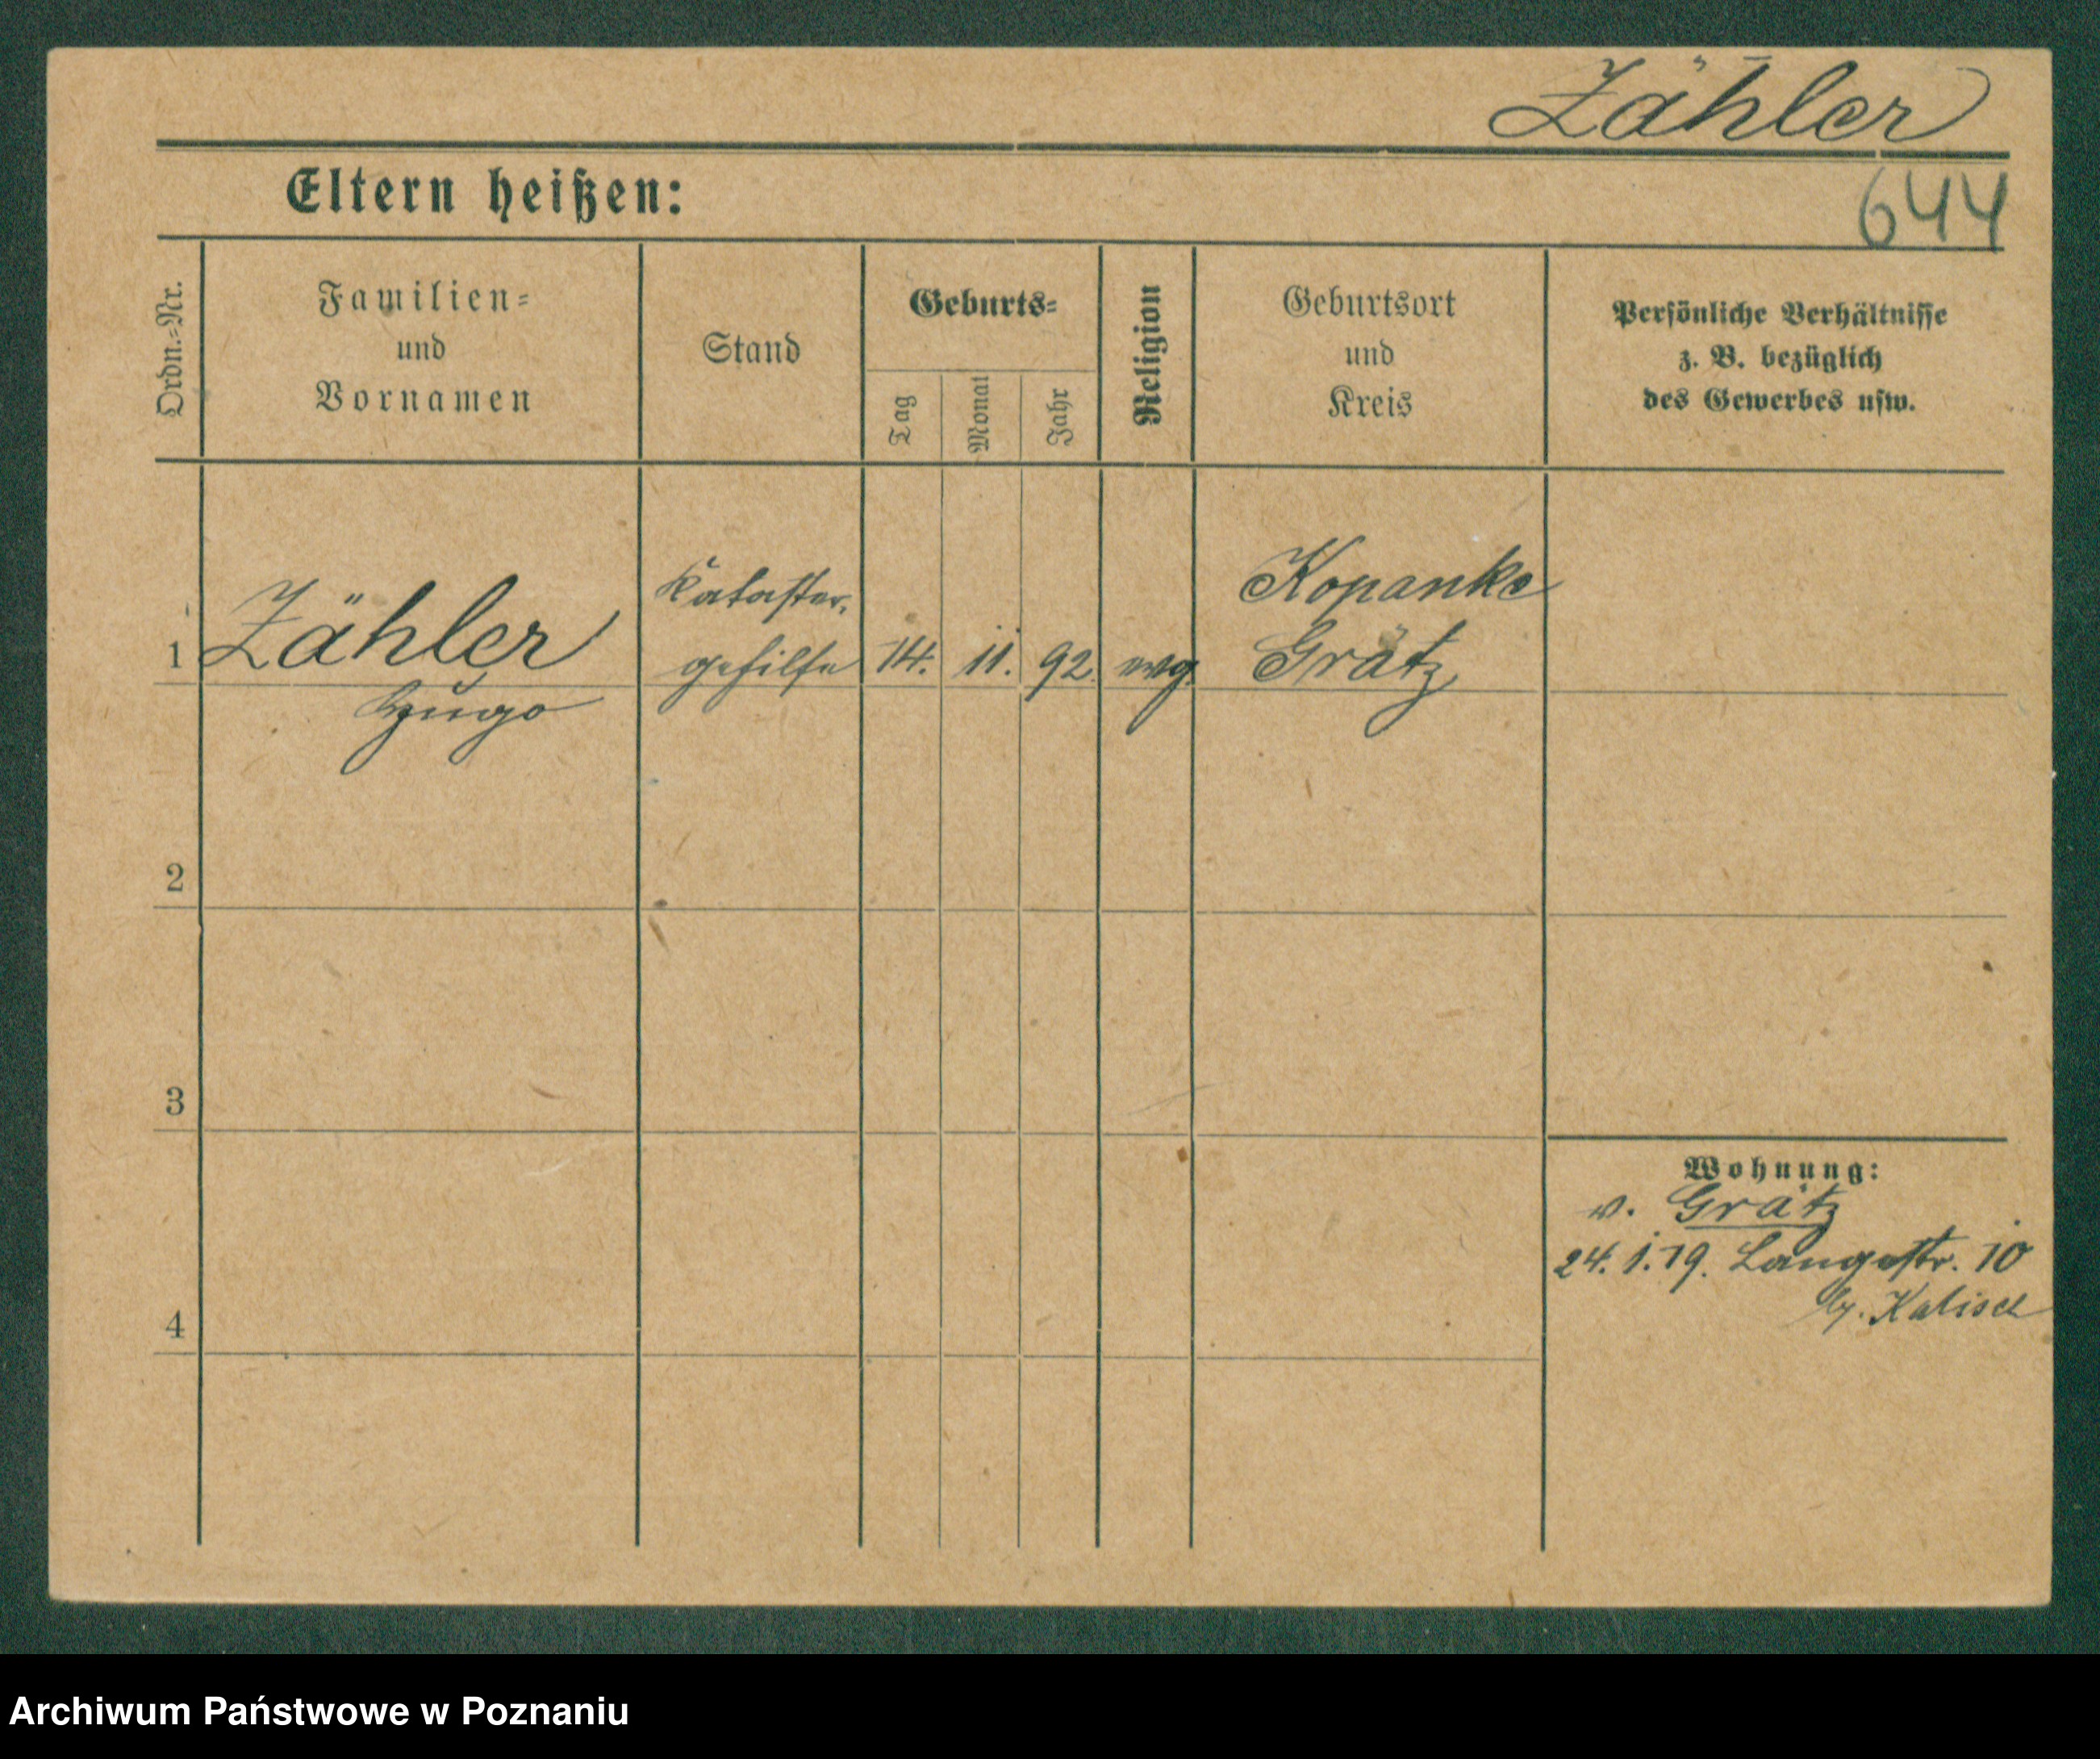 Zähler
Eltern heißen:
644
Ordn.=Nr.
Familien=
und
Vornamen
Stand
Geburts=
Tag
Monat
Jahr
Religion
Geburtsort
und
Kreis
Persönliche Verhältnisse
z. B. bezüglich
des Gewerbes usw.
1
Zähler
Hugo
Kataster-
gehilfe
14.
11.
92.
evg.
Kopanke
Grätz
2
3
4
Wohnung:
v. Grätz
24. 1. 19. Langestr. 10
Kalisch
Archiwum Państwowe w Poznaniu